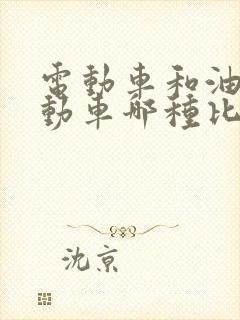 電動車和油
動車哪種比
沈京